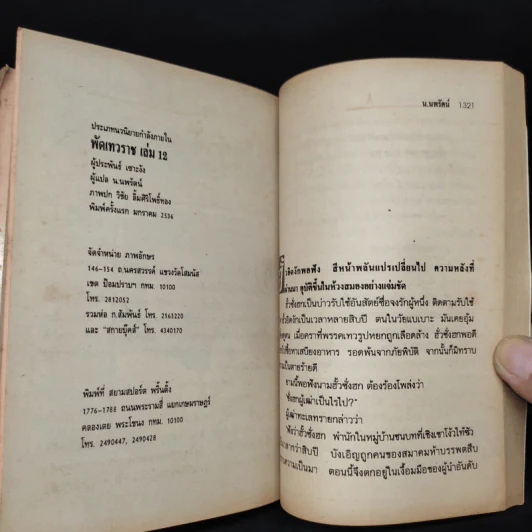 ประเภทนวนิยายกำลังภายใน
พัดเทวราช เล่ม 12
ผู้ประพันธ์ เซาะงัง
ผู้แปล น.นพรัตน์
ภาพปก วิชัย ลิ้มศิริโพธิ์ทอง
พิมพ์ครั้งแรก มกราคม 2536
จัดจำหน่าย ภาพอักษร
146-154 ถ.นครสวรรค์ แขวงวัดโสมนัส
เขต ป้อมปราบฯ กทม. 10100
โทร. 2812052
รวมห่อ ก.สัมพันธ์ โทร. 2163220
และ "สกายบุ๊คส์" โทร. 4340170
พิมพ์ที่ สยามสปอร์ต พริ้นติ้ง
1776-1788 ถนนพระรามสี่ แยกเกษมราษฎร์
คลองเตย พระโขนง กทม. 10100
โทร. 2490447, 2490428
น.นพรัตน์ 1321
พอฟัง สีหน้าพลันแปรเปลี่ยนไป ความหลังที่
ผ่านมา อุบัติขึ้นในห้วงสมองอย่างแจ่มชัด
ฮั้วซั่งฮกเป็นบ่าวรับใช้อันสัตย์ซื่อของรักผู้หนึ่ง ติดตามรับใช้
เป็นเวลาหลายสิบปี ตนในวัยแบเบาะ มันเคยอุ้ม
เมื่อคราที่พรรคเทวรูปหยกถูกเลือดล้าง ฮั้วซั่งฮกพอดี
รอดพ้นจากภัยพิบัติ จากนั้นก็มิทราบ
ยามนี้พอฟังนามฮั้วซั่งฮก ต้องร้องโพล่งว่า
ผู้เฒ่าเป็นไรไป?"
ผู้เฒ่าทะเลทรายกล่าวว่า
ฮั้วซั่งฮก พำนักในหมู่บ้านชนบทที่เชิงเขาโง้วไท้ซัว
กว่าสิบปี บังเอิญถูกคนของสมาคมห้าบรรพตสืบ
ความเป็นมา ตอนนี้จึงตกอยู่ในเงื้อมมือของผู้นำอันดับ